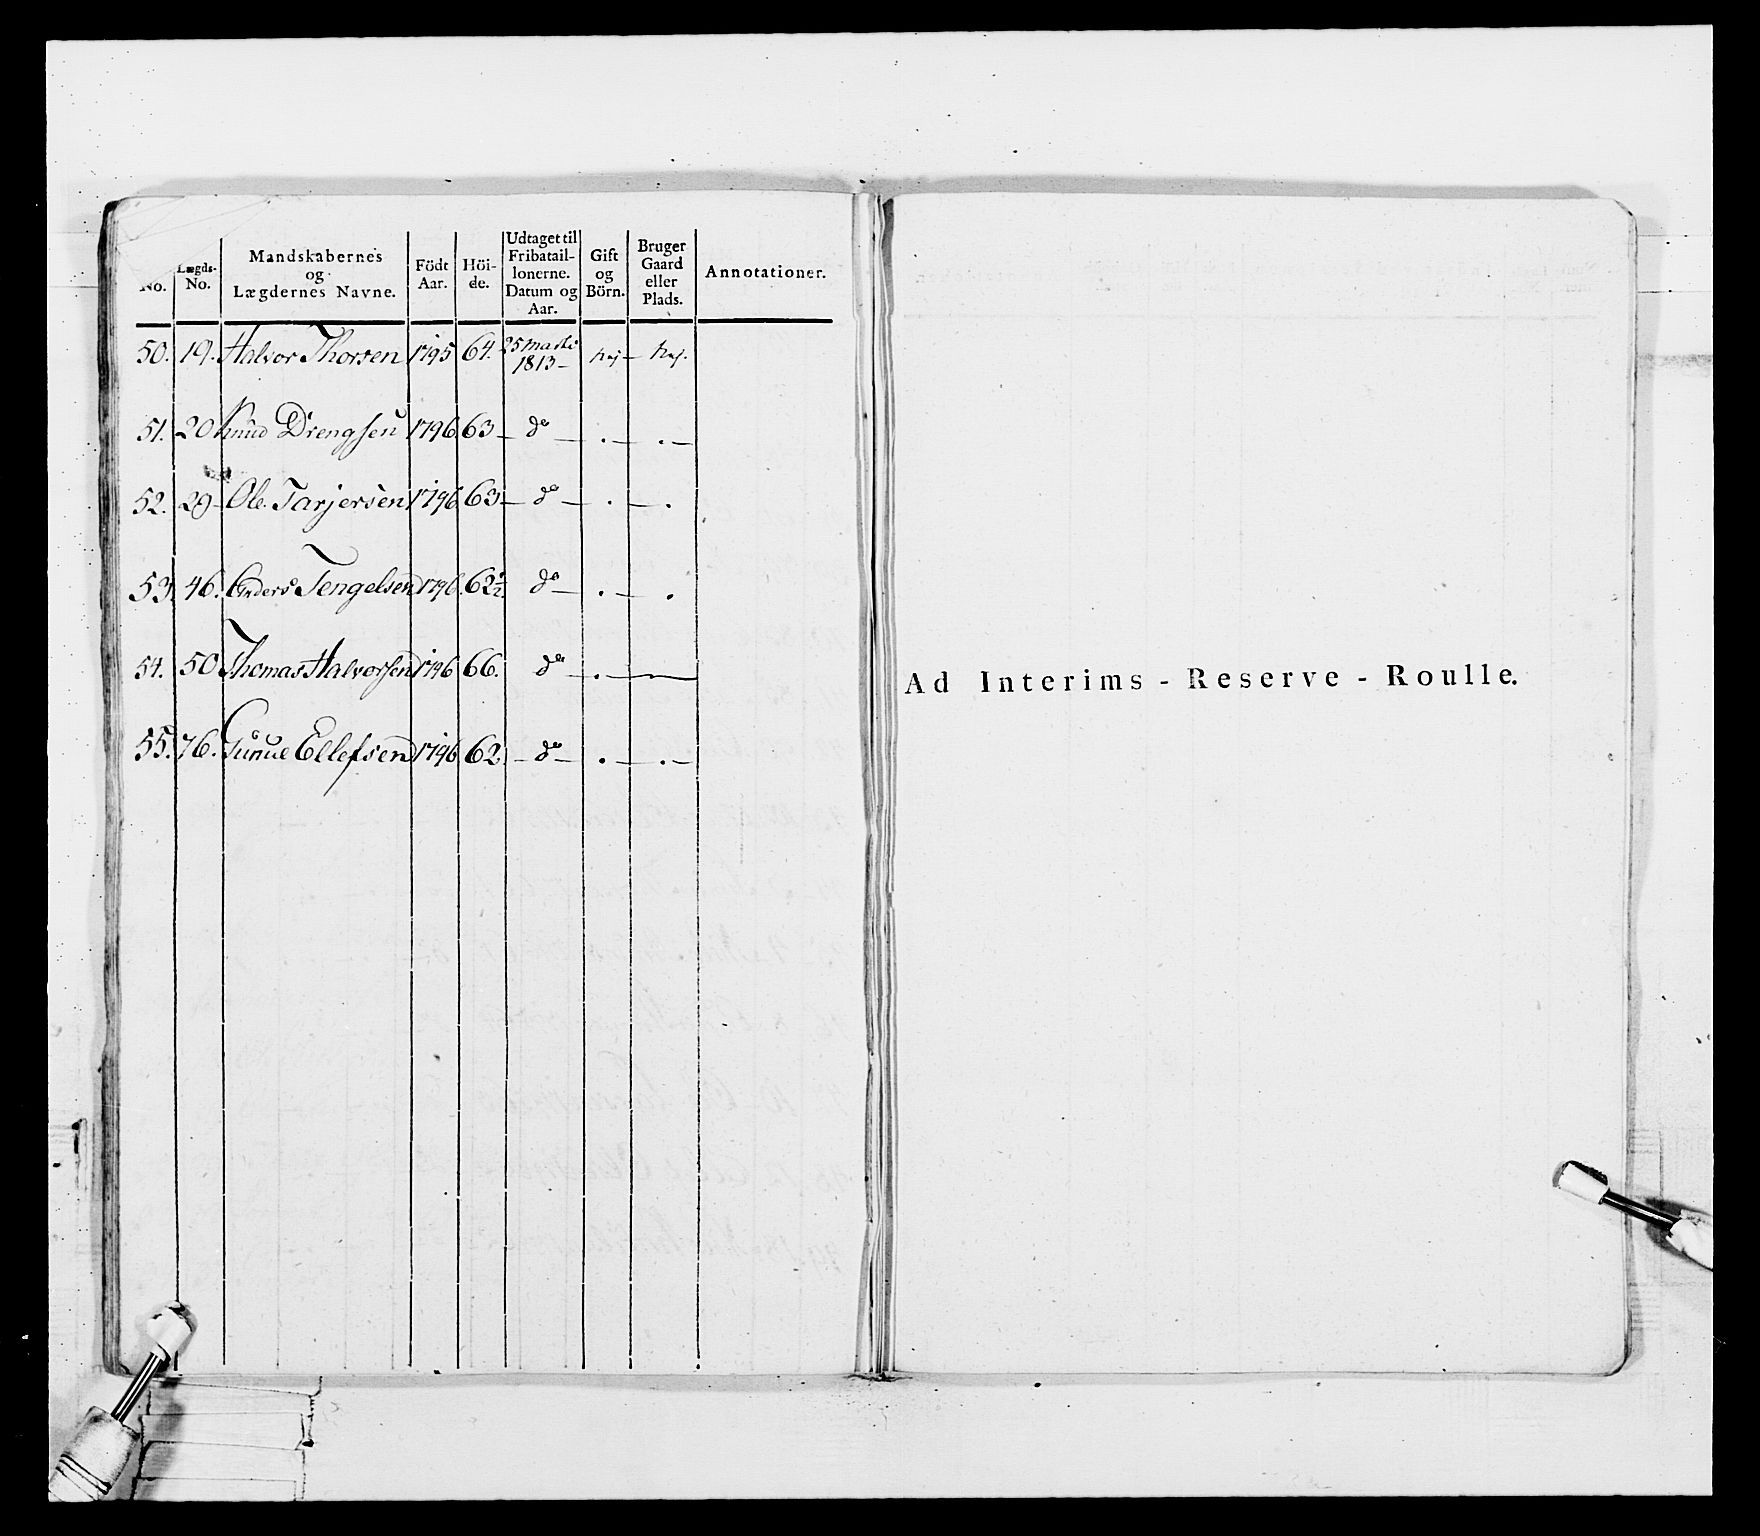 No. | Lægds-No. | Mandskabernes og Lægdernes Navne. | Födt Aar. | Höi-de. | Udtaget til Fribatail-lonerne. Datum og Aar. | Gift og Börn. | Bruger Gaard eller Plads. | Annotationer.
50. 19. Halvor Thorsen 1795 64. 25 Martii 1813 – Nej – Nej.
51. 20 Knud Drengsen 1796 63 – do – . – . –
52. 29 – Ole Tarjersen 1796 63 – do – . – .
53. 46. Anders Tengelsen 1796. 62½. do – . – .
54. 50 Thomas Halvorsen 1796 66. do – . –
55. 76. Gunnul Ellefsen 1796 62 – do – . – . –
Ad Interims - Reserve - Roulle.